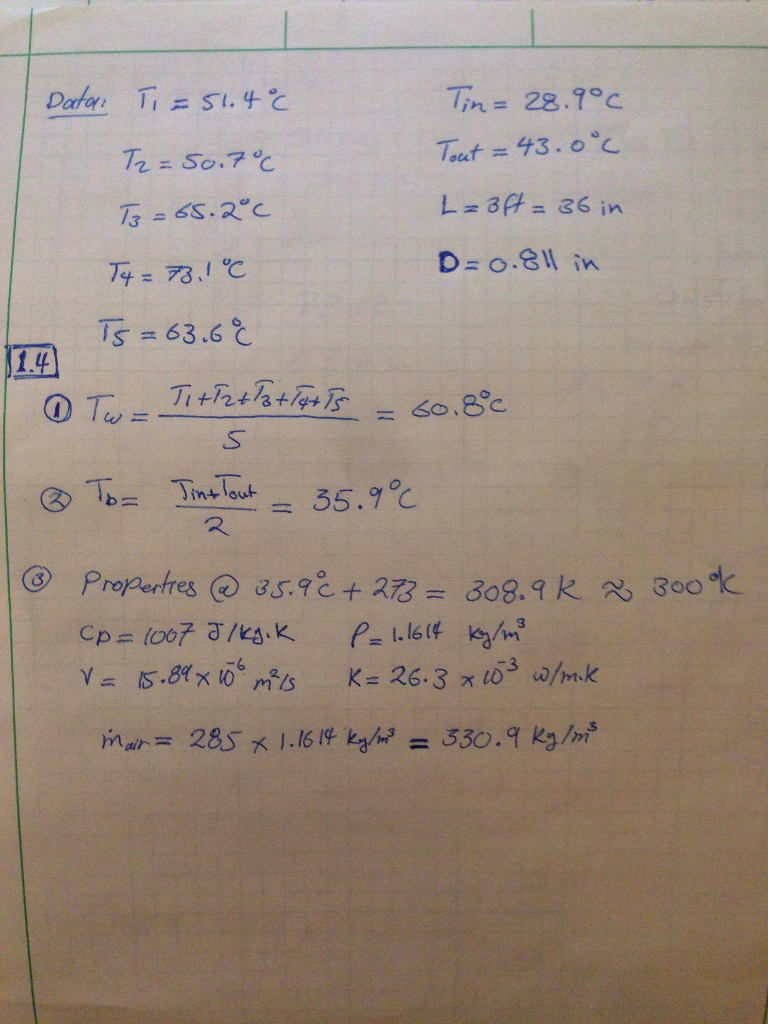 Data: T1 = 51.4°C Tin = 28.9°C
T2 = 50.7°C Tout = 43.0°C
T3 = 65.2°C L = 3ft = 36 in
T4 = 73.1°C D = 0.811 in
T5 = 63.6°C
1.4
① Tw = (T1+T2+T3+T4+T5)/5 = 60.8°C
② Tb = (Tin+Tout)/2 = 35.9°C
③ Properties @ 35.9°C + 273 = 308.9 K ≈ 300°K
Cp = 1007 J/kg.K ρ = 1.1614 kg/m³
ν = 15.89 × 10⁻⁶ m²/s K = 26.3 × 10⁻³ w/m.k
ṁair = 285 × 1.1614 kg/m³ = 330.9 kg/m³